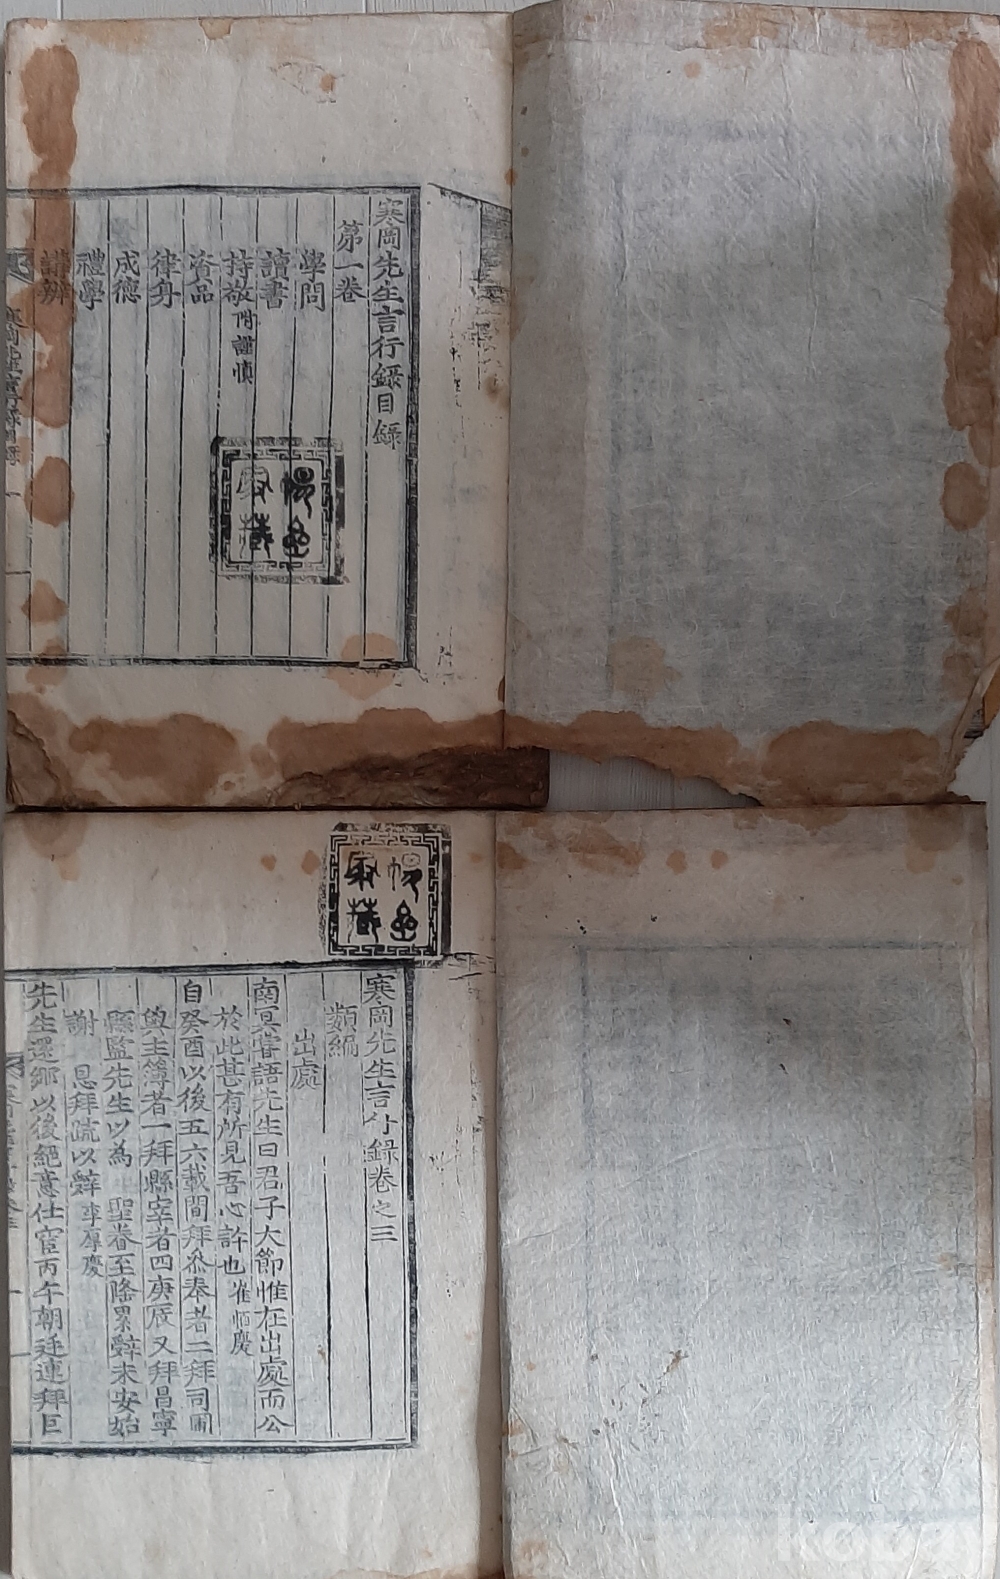 寒岡先生言行録目録
第一卷
學問
讀書
持敬 附謹愼
資品
律身
成德
禮學
講辨
家藏
寒岡先生言行録卷之三
類編
出處
南冥嘗語先生曰君子大節惟在出處而公
於此甚有所見吾心許也 崔恒慶
自癸酉以後五六載間拜叅奉者二拜司圃
與主簿者一拜縣宰者四庚辰又拜昌寧
縣監先生以爲 聖眷至隆累辭未安始
謝 恩拜疏以辭 李厚慶
先生還鄕以後絶意仕宦丙午朝廷連拜巨
家藏
koba